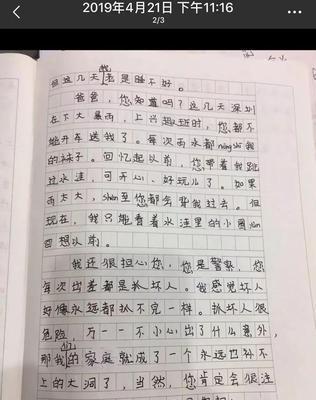 2019年4月21日 下午11:16
2/3
我
但这几天老是睡不好。
爸爸，您知道吗？这几天深圳
在下大暴雨，上兴趣班时，您都不
能开车送我了。每次雨水都nòng shī我
的袜子。回忆起以前，您带着我跳
过水洼，可开心、好玩儿了。如果
雨太大，shèn至您都会背我过去。但
现在，我只能看着水洼里的小圈yuān
回想以前。
我还很担心您，您是警察，您
每次出差都是抓坏人。我感觉坏人
好像永远都抓不完一样。抓坏人很
危险，万一一不小心出了什么意外，
们
那我的家庭就成了一个永远也补不
上的大洞了，当然，您肯定会很注